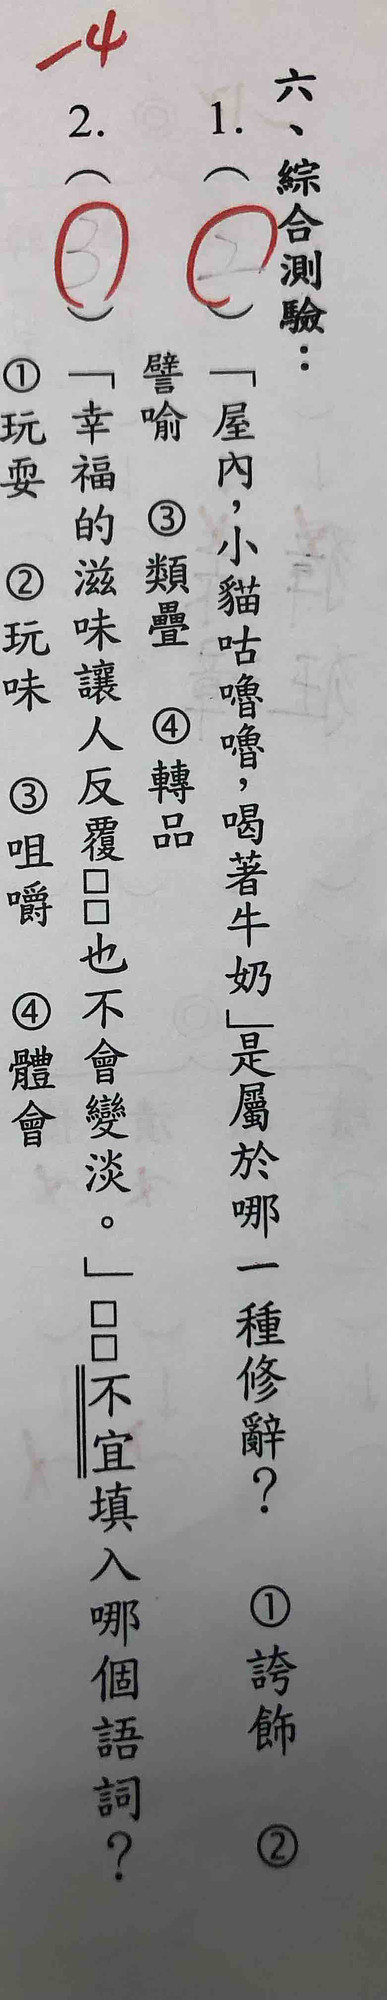 六、綜合測驗：
1.（2）「屋內，小貓咕嚕嚕，喝著牛奶」是屬於哪一種修辭？ ①誇飾 ②
譬喻 ③類疊 ④轉品
-4
2.（3）「幸福的滋味讓人反覆□□也不會變淡。」□□不宜填入哪個語詞？
①玩耍 ②玩味 ③咀嚼 ④體會